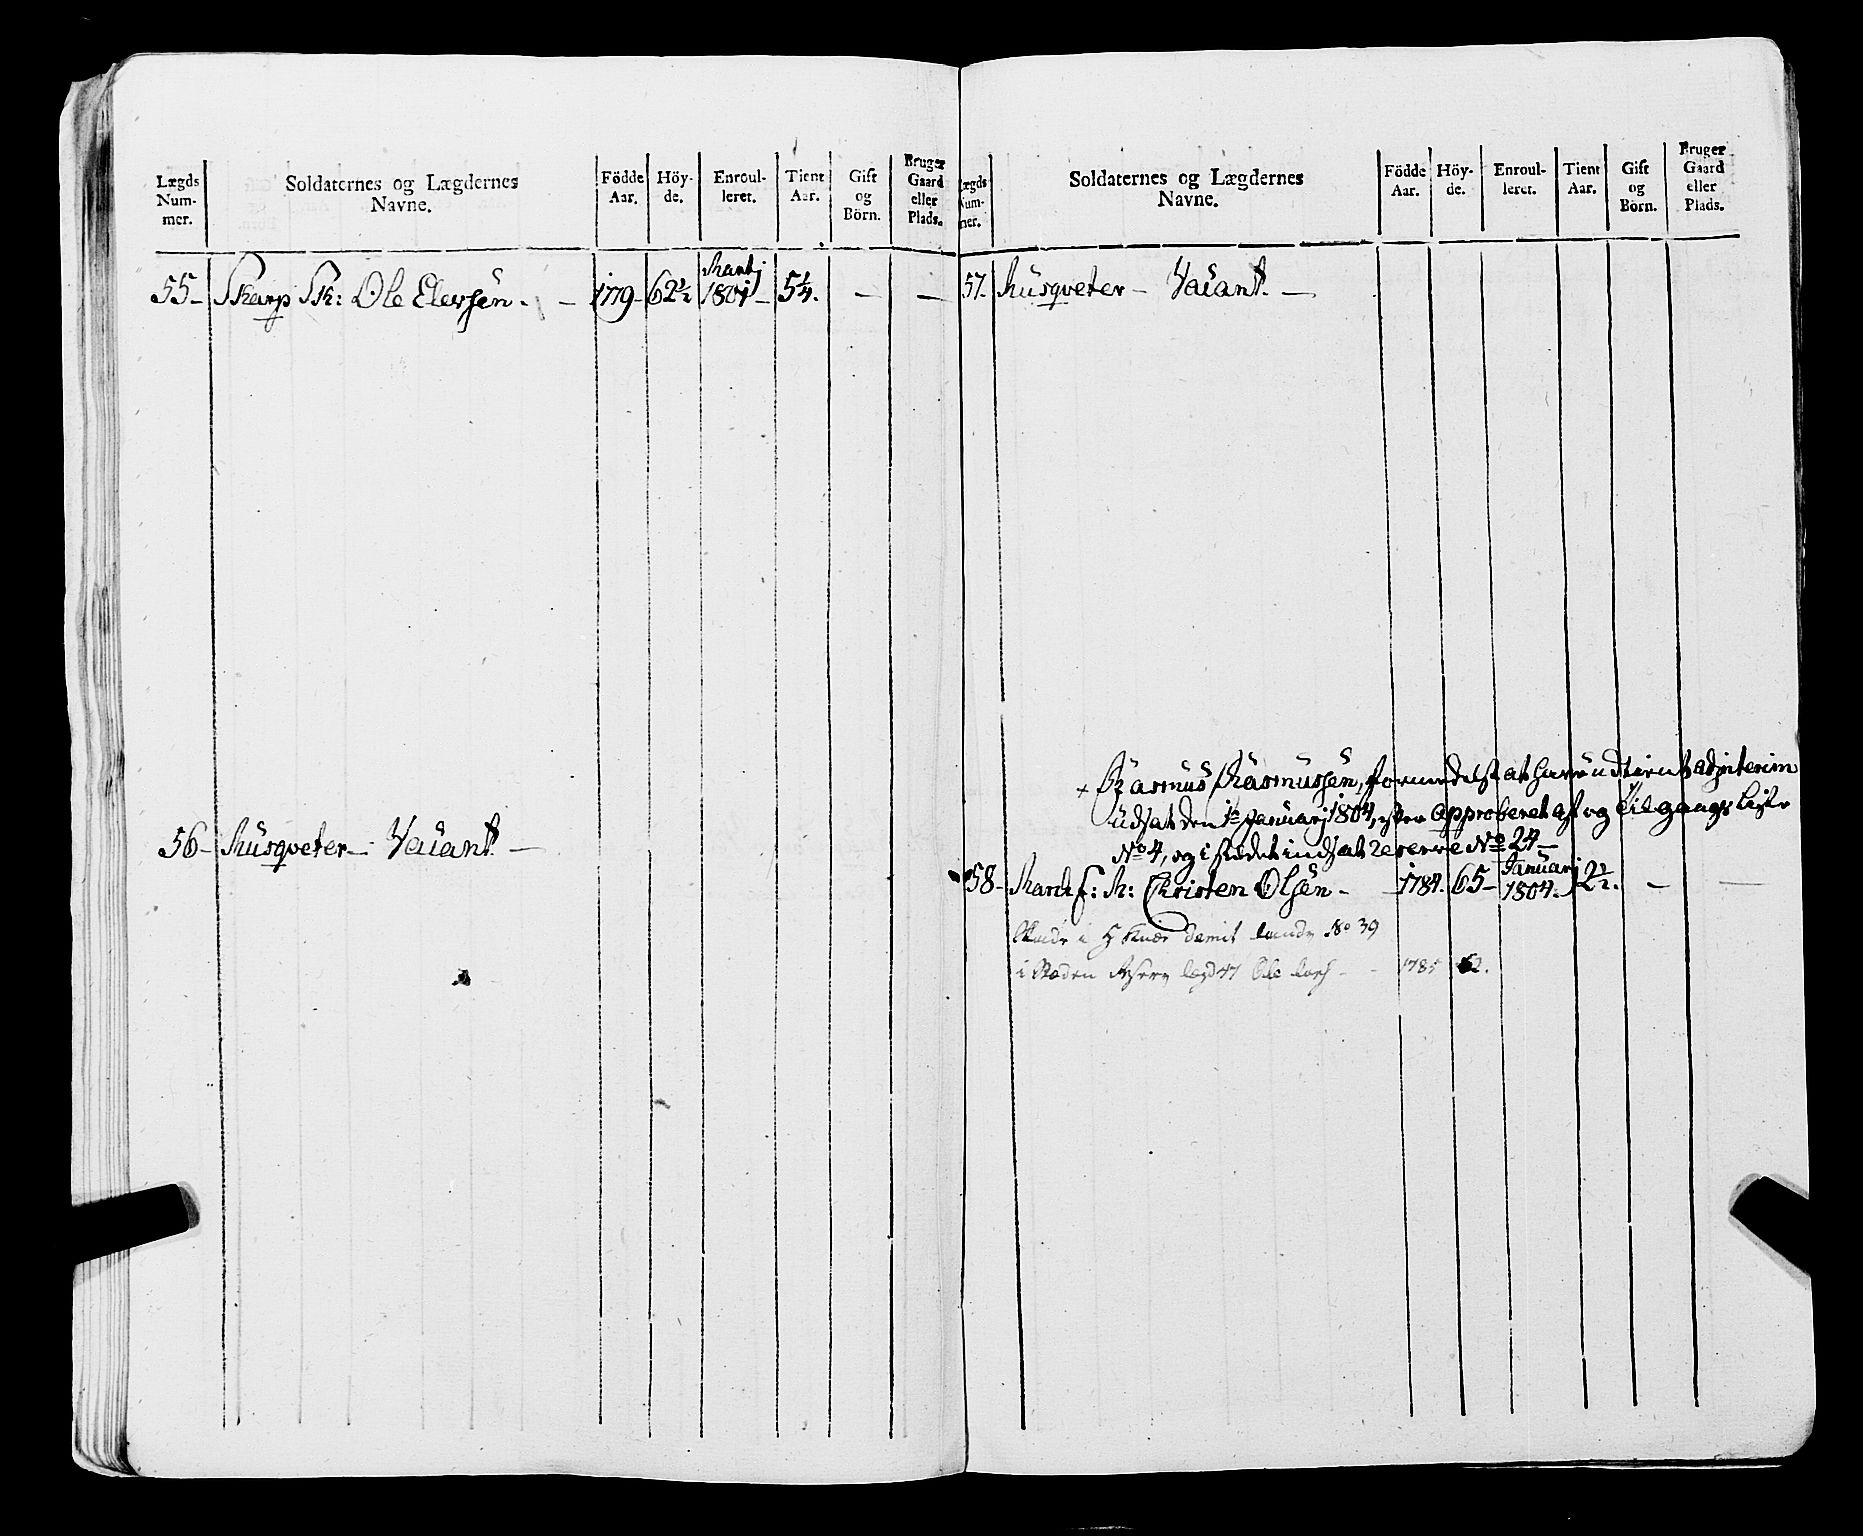 Lægds Num- mer. Soldaternes og Lægdernes Navne. Födde Aar. Höy- de. Enroul- leret. Tient Aar. Gift og Börn. Bruger Gaard eller Plads.
55- Skarp Sk: Ole Elersen. - 1779- 62½ Martj 1801- 5¼. - -
56- Musqveter - Vacant. -
Lægds Num- mer. Soldaternes og Lægdernes Navne. Födde Aar. Höy- de. Enroul- leret. Tient Aar. Gift og Börn. Bruger Gaard eller Plads.
57- Musqveter - Vacant. -
+ Rasmus Rasmussen, formedelst at have udtient adjnterim
udsat den 1te Januarj 1804, efter Approberet af og Tilgangs Liste
No 4, og i stedet indsat Reserve No 24 -
58- Christen Olsen - 1784. 65- Januarj 1804. 2½. - -
No 39
i Steden Reserv lægd 47 Ole - - 1785 62.